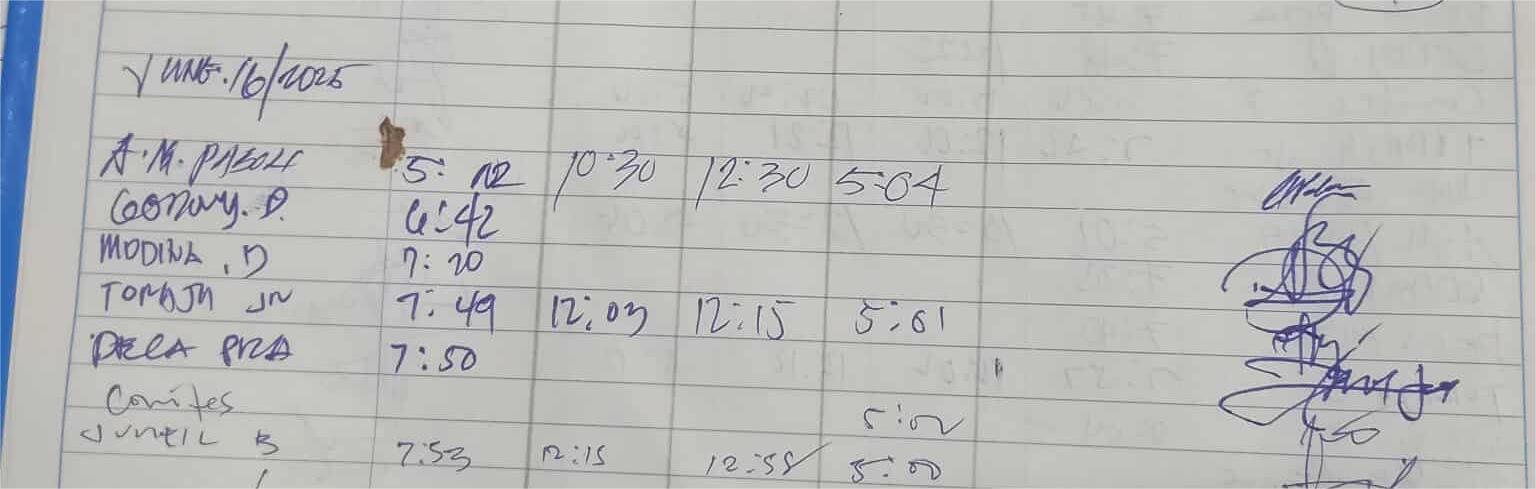 JUNE.16/2025
A.M. PABOLI 5:12 10:30 12:30 5:04
6:42
MODINA, D 7:20
TOMAJA JR 7:49 12:03 12:15 5:01
DELA PEZA 7:50
Conites 5:02
JUNEIL B 7:53 12:15 12:55 5:00